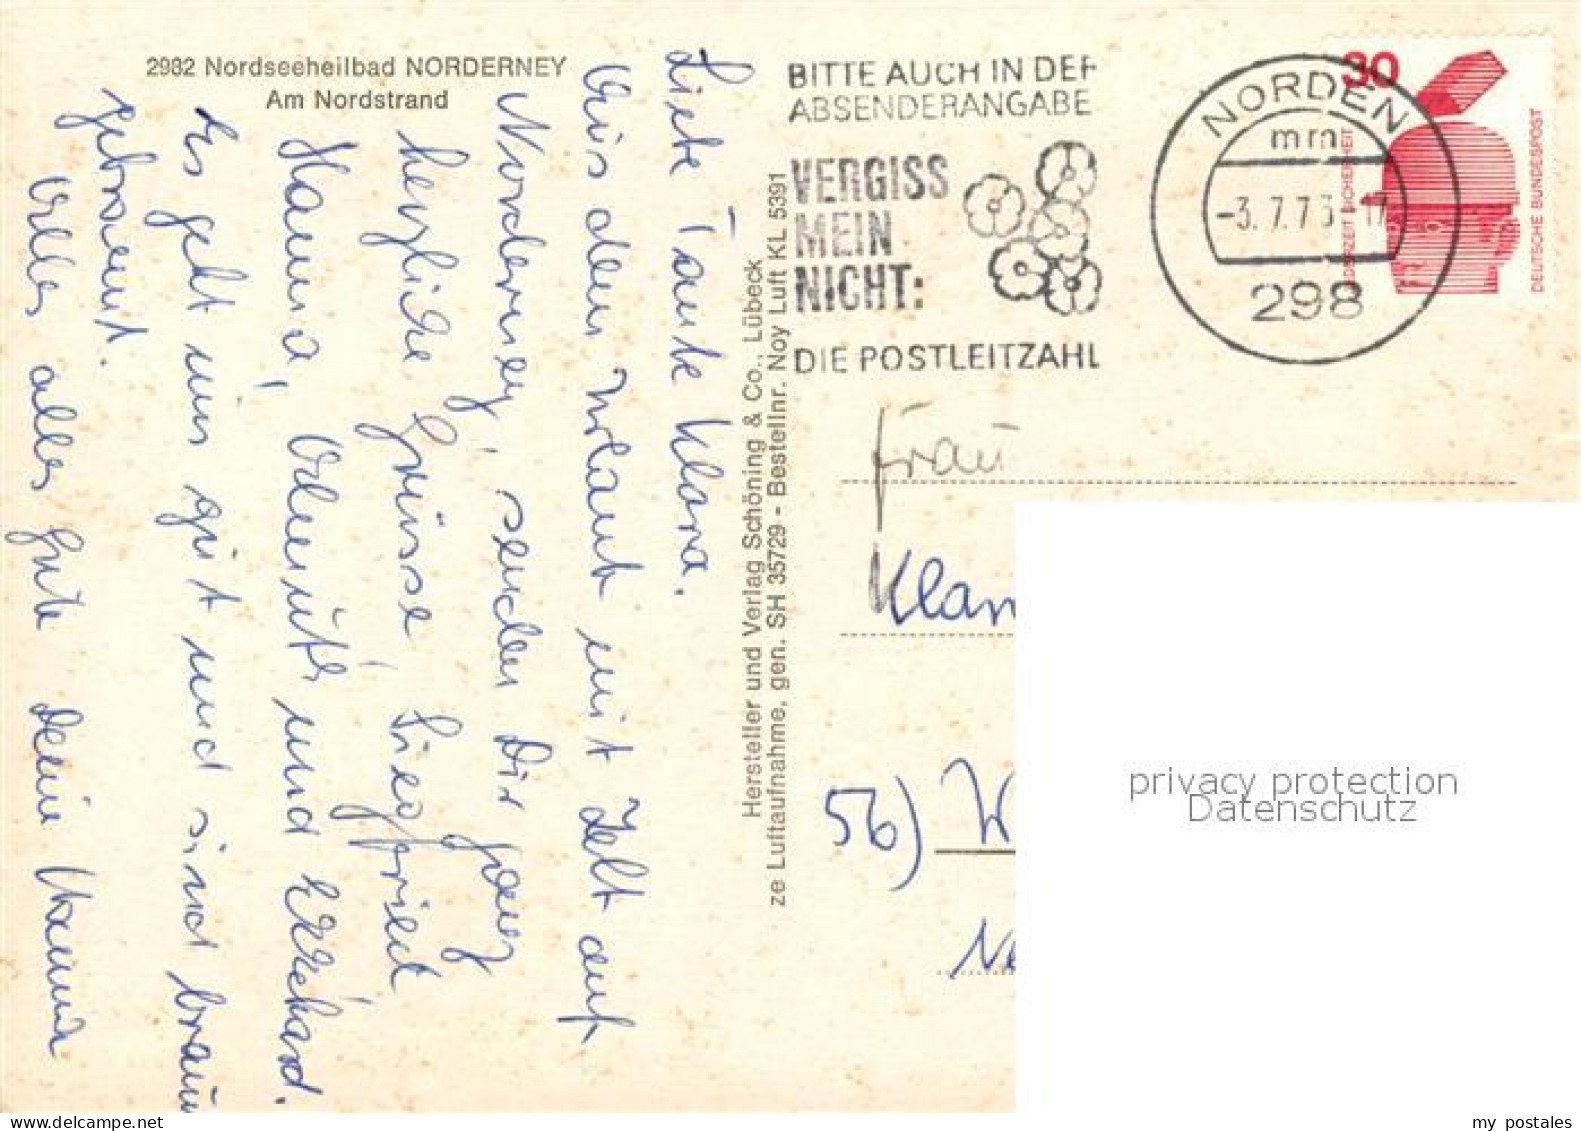 2982 Nordseeheilbad NORDERNEY
Am Nordstrand
Liebe Tante Klara.
Aus dem Urlaub mit Zelt auf
Norderney, senden Dir ganz
herzliche Grüsse, Siegfried
Hanna, Almuth und Ekkehard.
Es geht uns gut und sind braun
gebrannt.
Alles alles Gute Deine Hanna
Hersteller und Verlag Schöning & Co., Lübeck
ze Luftaufnahme, gen. SH 35729 - Bestellnr. Noy Luft KL 5391
BITTE AUCH IN DER
ABSENDERANGABE
VERGISS
MEIN
NICHT:
DIE POSTLEITZAHL
NORDEN
mm
-3.7.7 -17
298
30
JEDERZEIT SICHERHEIT
DEUTSCHE BUNDESPOST
Frau
56) W
privacy protection
Datenschutz
my postales